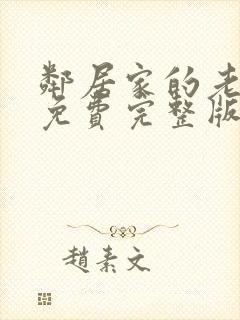 鄰居家的老
免費完整版
趙素文